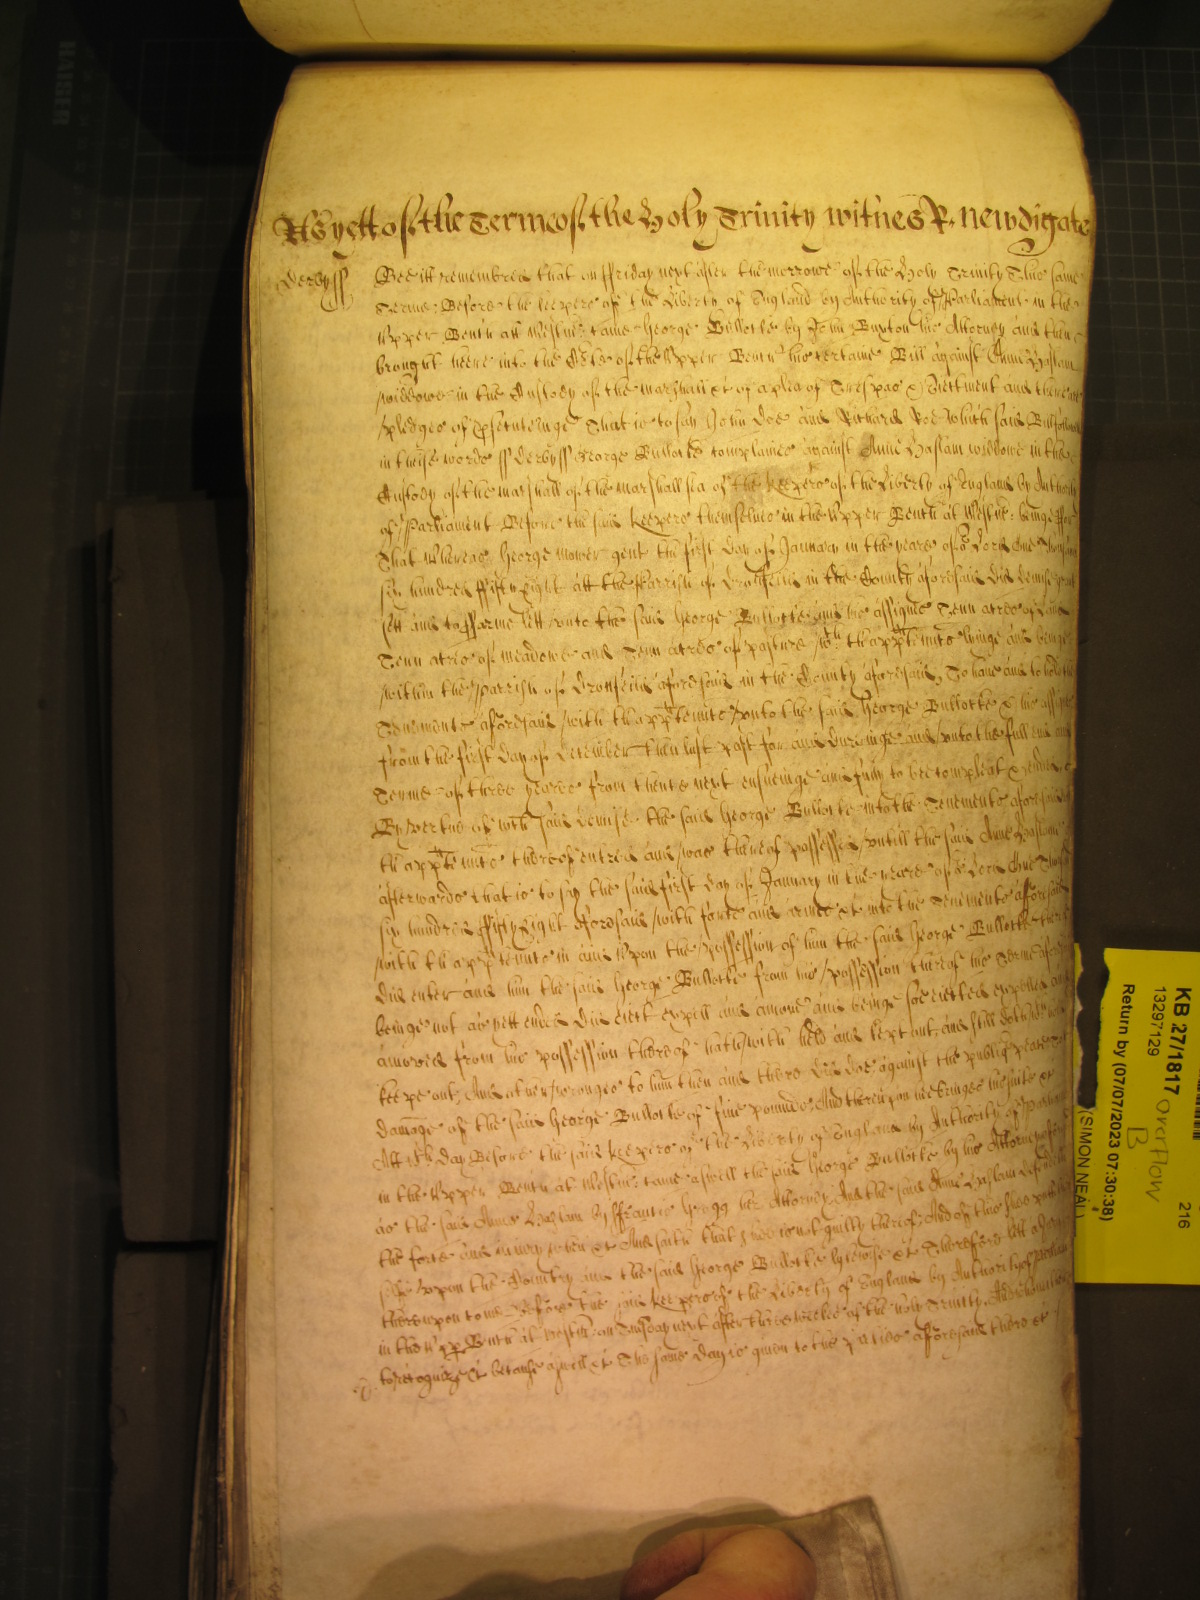 As yett of the Terme of the Holy Trinity witnes R. Newdigate
Derbyss Bee itt remembred that on ffriday next after the morrowe of the Holy Trinity this same
Terme Before the keepers of the liberty of England by Authority of Parliament in the
Upper Bench att Westmr came George Bullocke by John Buxton his Attorney and then
brought heere into the Co[ur]te of the Upper Bench his certaine Bill against Anne Haslam
widdowe in the Custody of the marshall &c of a plea of Trespas & Eiectment and there are
pledges of p[ro]secuteinge That is to say John Doe and Richard Roe which said Bill followes
in theise words ss Derbyss George Bullocke complaines against Anne Haslam widdowe in the
Custody of the marshall of the marshallsea of the keepers of the liberty of England by Authority
of Parliament Before the said keepers themselves in the Upper Bench at Westmr beinge ffor
That Whereas George Mower gent the first day of January in the yeare of or Lord One Thousand
six hundred ffifty Eight att the Parrish of Dronfeild in the County aforesaid did demise grant
sett and to ffarme lett unto the said George Bullocke and his assignes Tenn acres of land
Tenn acres of meadowe and Tenn acres of pasture wth thapp[ur]ten[a]nces lyinge and beinge
within the parrish of Dronfeild aforesaid in the County aforesaid, To have and to hold the
Tenements aforesaid with thapp[ur]ten[a]nces unto the said George Bullocke & his assignes
from the first day of December then last past for and dureinge and unto the full end and
Terme of three yeares from thence next ensueinge and fully to bee compleat & ended
By vertue of wch said demise the said George Bullocke into the Tenements aforesaid
thapp[ur]ten[a]nces thereof entred and was thereof possessed untill the said Anne Haslam
afterwards that is to say the said first day of January in the yeare of or Lord One Thousand
six hundred ffifty Eight aforesaid with force and armes &c into the Tenements afforesaid
with thapp[ur]ten[a]nces in and upon the possession of him the said George Bullocke thereof
did enter and him the said George Bullocke from his possession thereof his Terme aforesaid
beinge not as yett ended did eiect expell and amove and beinge soe eiected expelled and
amoved from his possession thereof hath with held and kept out and still doth
keepe out, And other wronges to him then and there did doe against the publiq peace
damage of the said George Bullocke of five pounds And thereupon hee bringes his suite &c
Att wch day Before the said keepers of the liberty of England by Authority of Parliament
in the Upper Bench at Westmr came aswell the said George Bullocke by his Attorney aforesaid
as the said Anne Haslam by ffrancis Gregg her Attorney And the said Anne Haslam defendeth
the force and iniury when &c And saith that shee is not guilty thereof, And of this shee putteth
selfe uppon the Country and the said George Bullocke likewise &c Therefore lett a Jury
thereupon come Before the said keepers of the liberty of England by Authority of Parliament
in the Upp[er] Bench at Westmr on Tuesday next after three weekes of the holy Trinity. And who neither
to recognize &c because aswell &c The same day is given to the p[ar]ties afforesaid there &c
KB 27/1817 overflow B
13297129
216
Return by (07/07/2023 07:30:38)
(SIMON NEAL)
KAISER